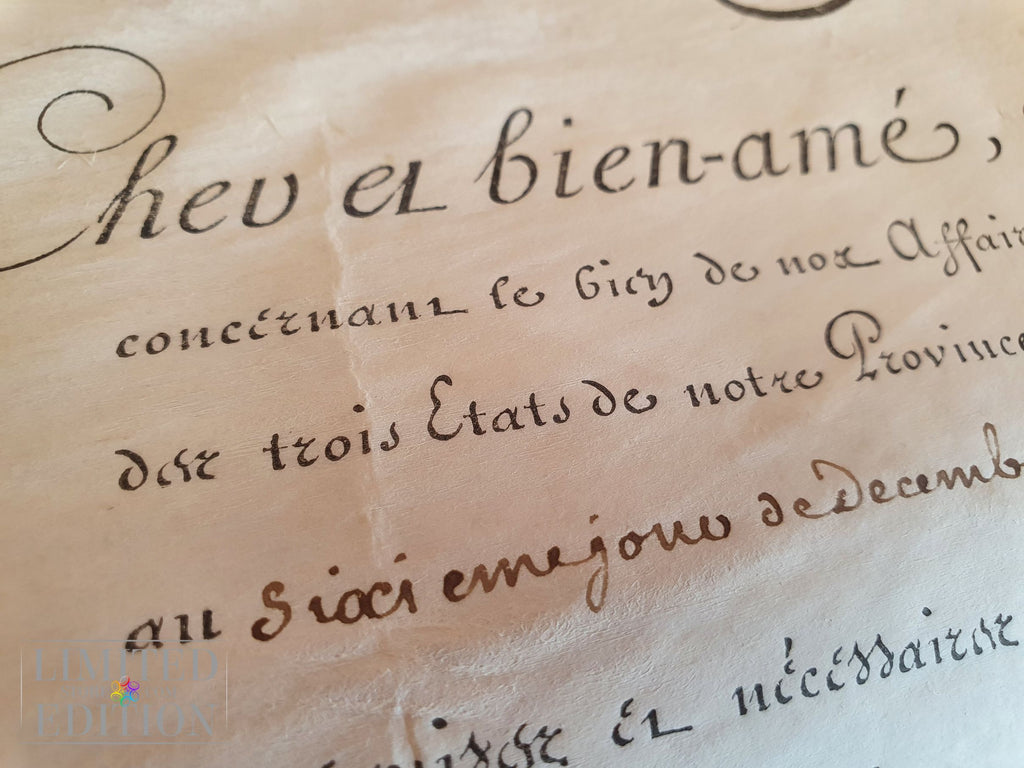 Cher et bien-amé,
concernant le bien de nos Affair
des trois Etats de notre Province
au Sixci eme jour de Decemb
et nécéssaires
LIMITED
EDITION